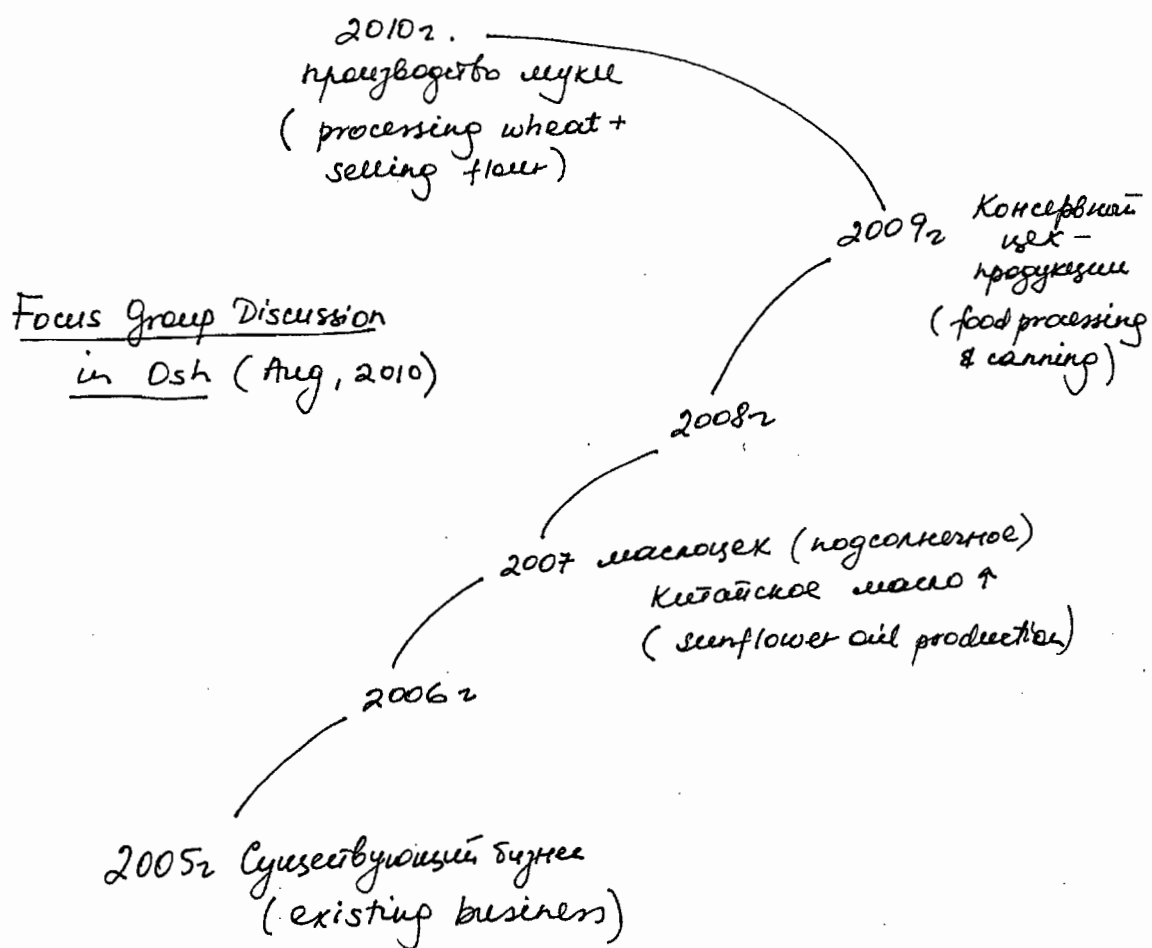 2010г.
производство муки
( processing wheat +
selling flour )
2009г Консервный
цех -
продукции
( food processing
& canning )
Focus Group Discussion
in Osh ( Aug, 2010 )
2008г
2007 маслоцех ( подсолнечное )
Китайское масло ↑
( sunflower oil production )
2006г
2005г Существующий бизнес
( existing business )